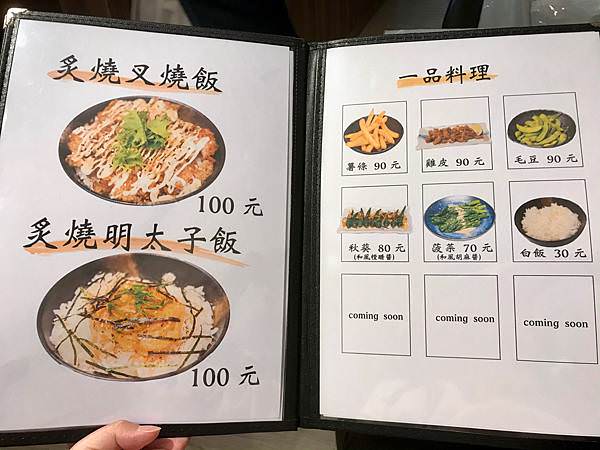 炙燒叉燒飯
100 元
炙燒明太子飯
100 元
一品料理
薯條 90 元
雞皮 90 元
毛豆 90 元
秋葵 80 元
(和風橙醋醬)
菠菜 70 元
(和風胡麻醬)
白飯 30 元
coming soon
coming soon
coming soon